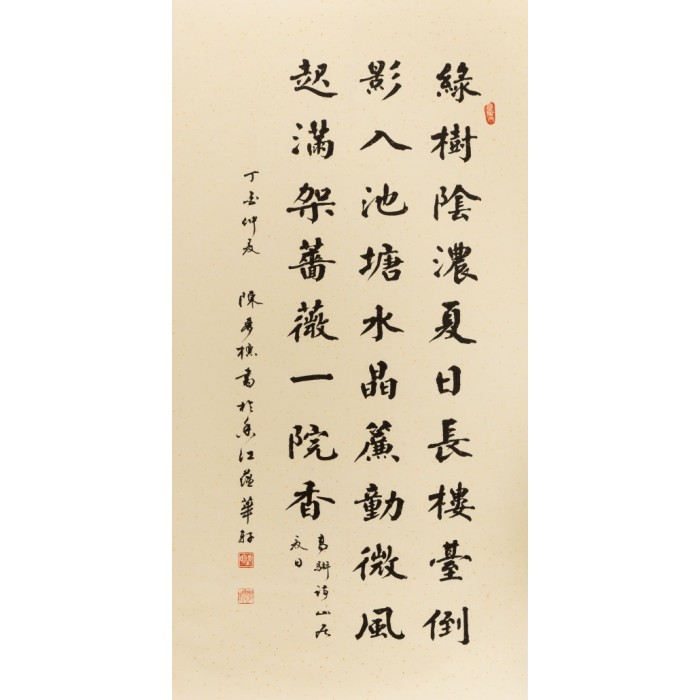 綠樹陰濃夏日長樓臺倒
影入池塘水晶簾動微風
起滿架薔薇一院香
高駢詩山居
夏日
丁酉仲夏 陳秀標書於香江蘊華軒